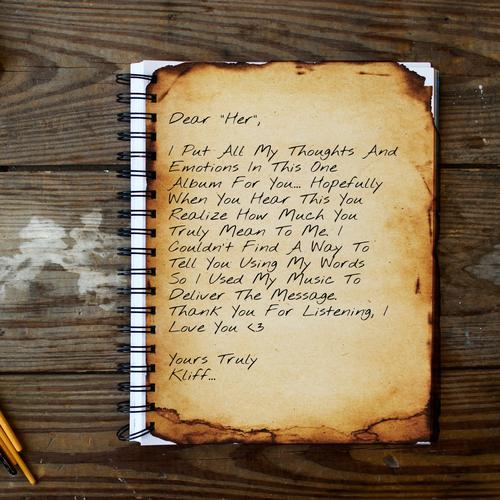 Dear "Her",
I Put All My Thoughts And
Emotions In This One
Album For You... Hopefully
When You Hear This You
Realize How Much You
Truly Mean To Me. I
Couldn't Find A Way To
Tell You Using My Words
So I Used My Music To
Deliver The Message.
Thank You For Listening, I
Love You <3
Yours Truly
Kliff...